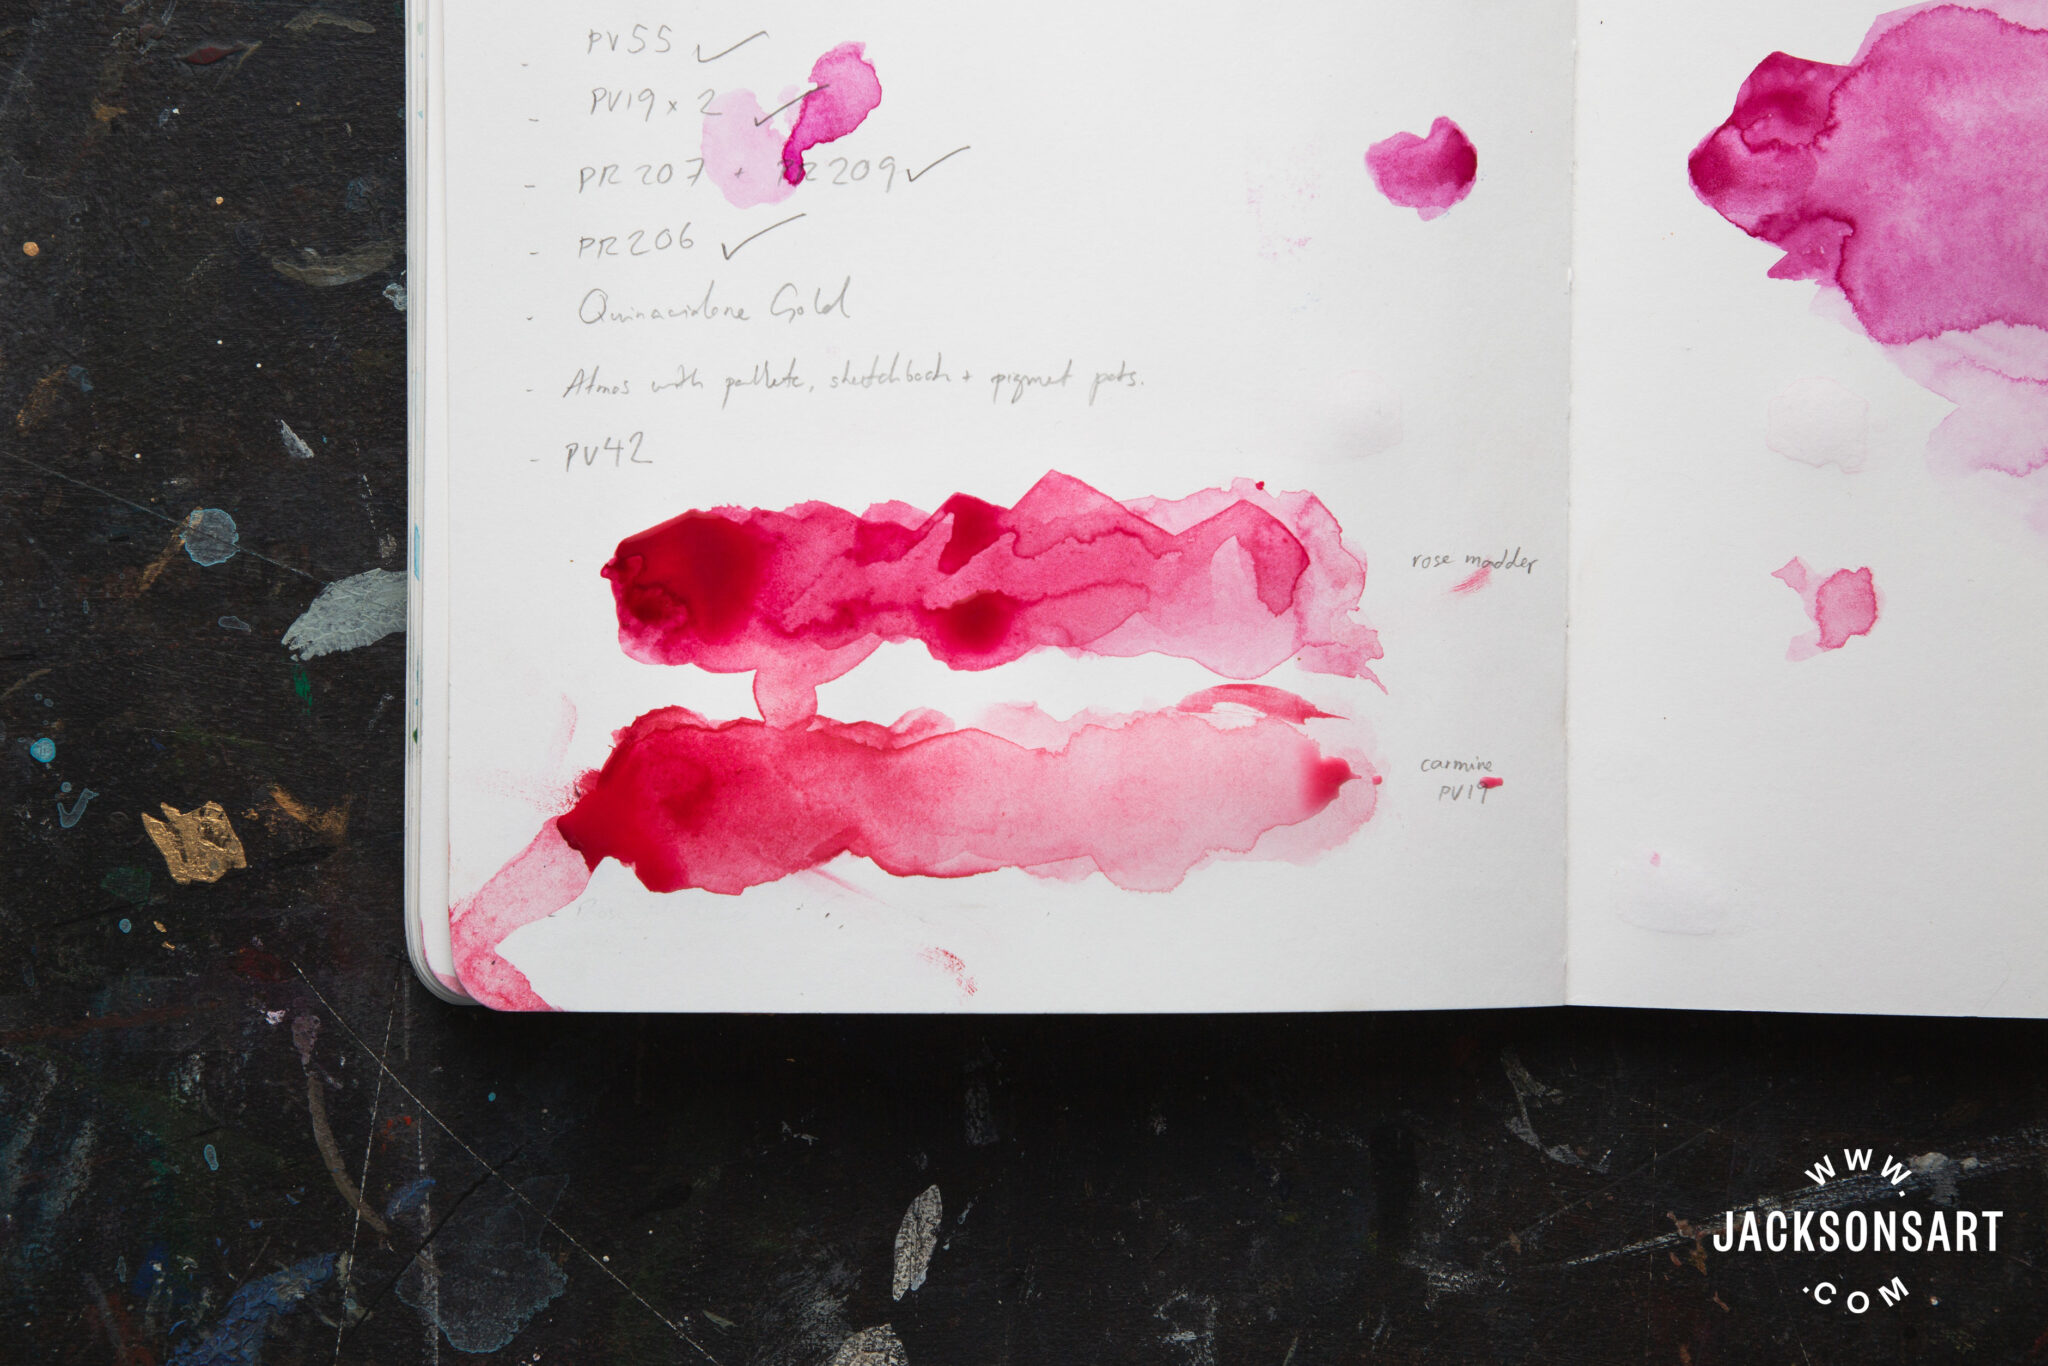 - PV55 ✓
- PV19 x 2 ✓
- PR207 + PR209 ✓
- PR206 ✓
- Quinacridone Gold
- Atmos with pallete, sketchbook + pigment pots.
- PV42
rose madder
carmine
PV19
WWW.
JACKSONSART
.COM